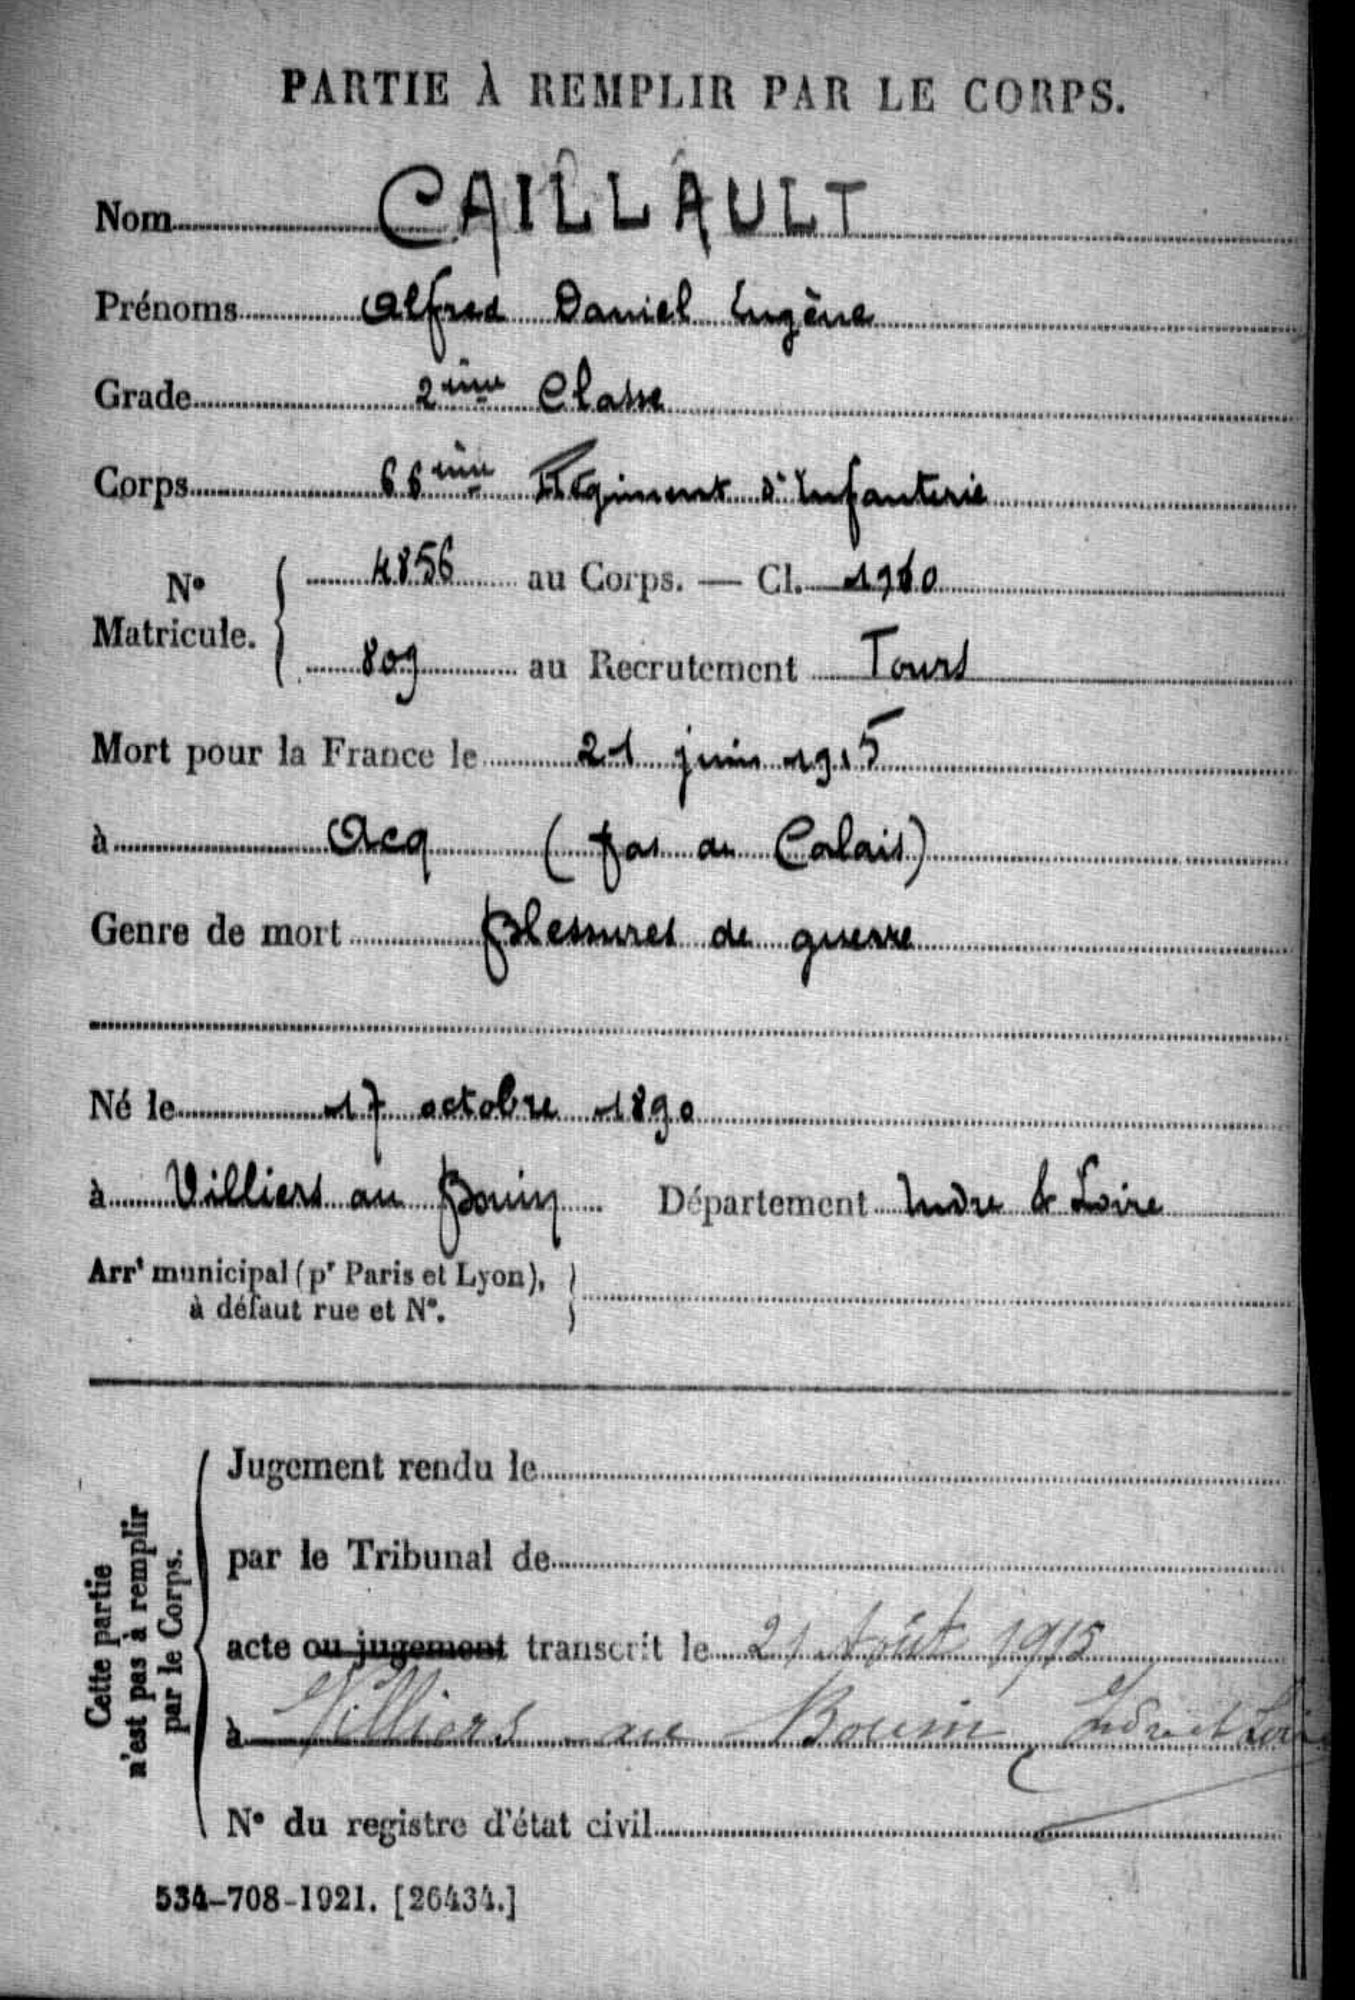 PARTIE À REMPLIR PAR LE CORPS.
Nom CAILLAULT
Prénoms Alfred Daniel Eugène
Grade 2ème Classe
Corps 66ème Régiment d'Infanterie
N° Matricule. 4856 au Corps. — Cl. 1910
809 au Recrutement Tours
Mort pour la France le 21 juin 1915
à Acq (Pas de Calais)
Genre de mort Blessures de guerre
Né le 17 octobre 1890
à Villiers au Bouin Département Indre & Loire
Arrt municipal (pr Paris et Lyon),
à défaut rue et N°.
Cette partie
n'est pas à remplir
par le Corps.
Jugement rendu le
par le Tribunal de
acte ou jugement transcrit le 21 Août 1915
à Villiers au Bouin Indre et Loire
N° du registre d'état civil
534-708-1921. [26434.]